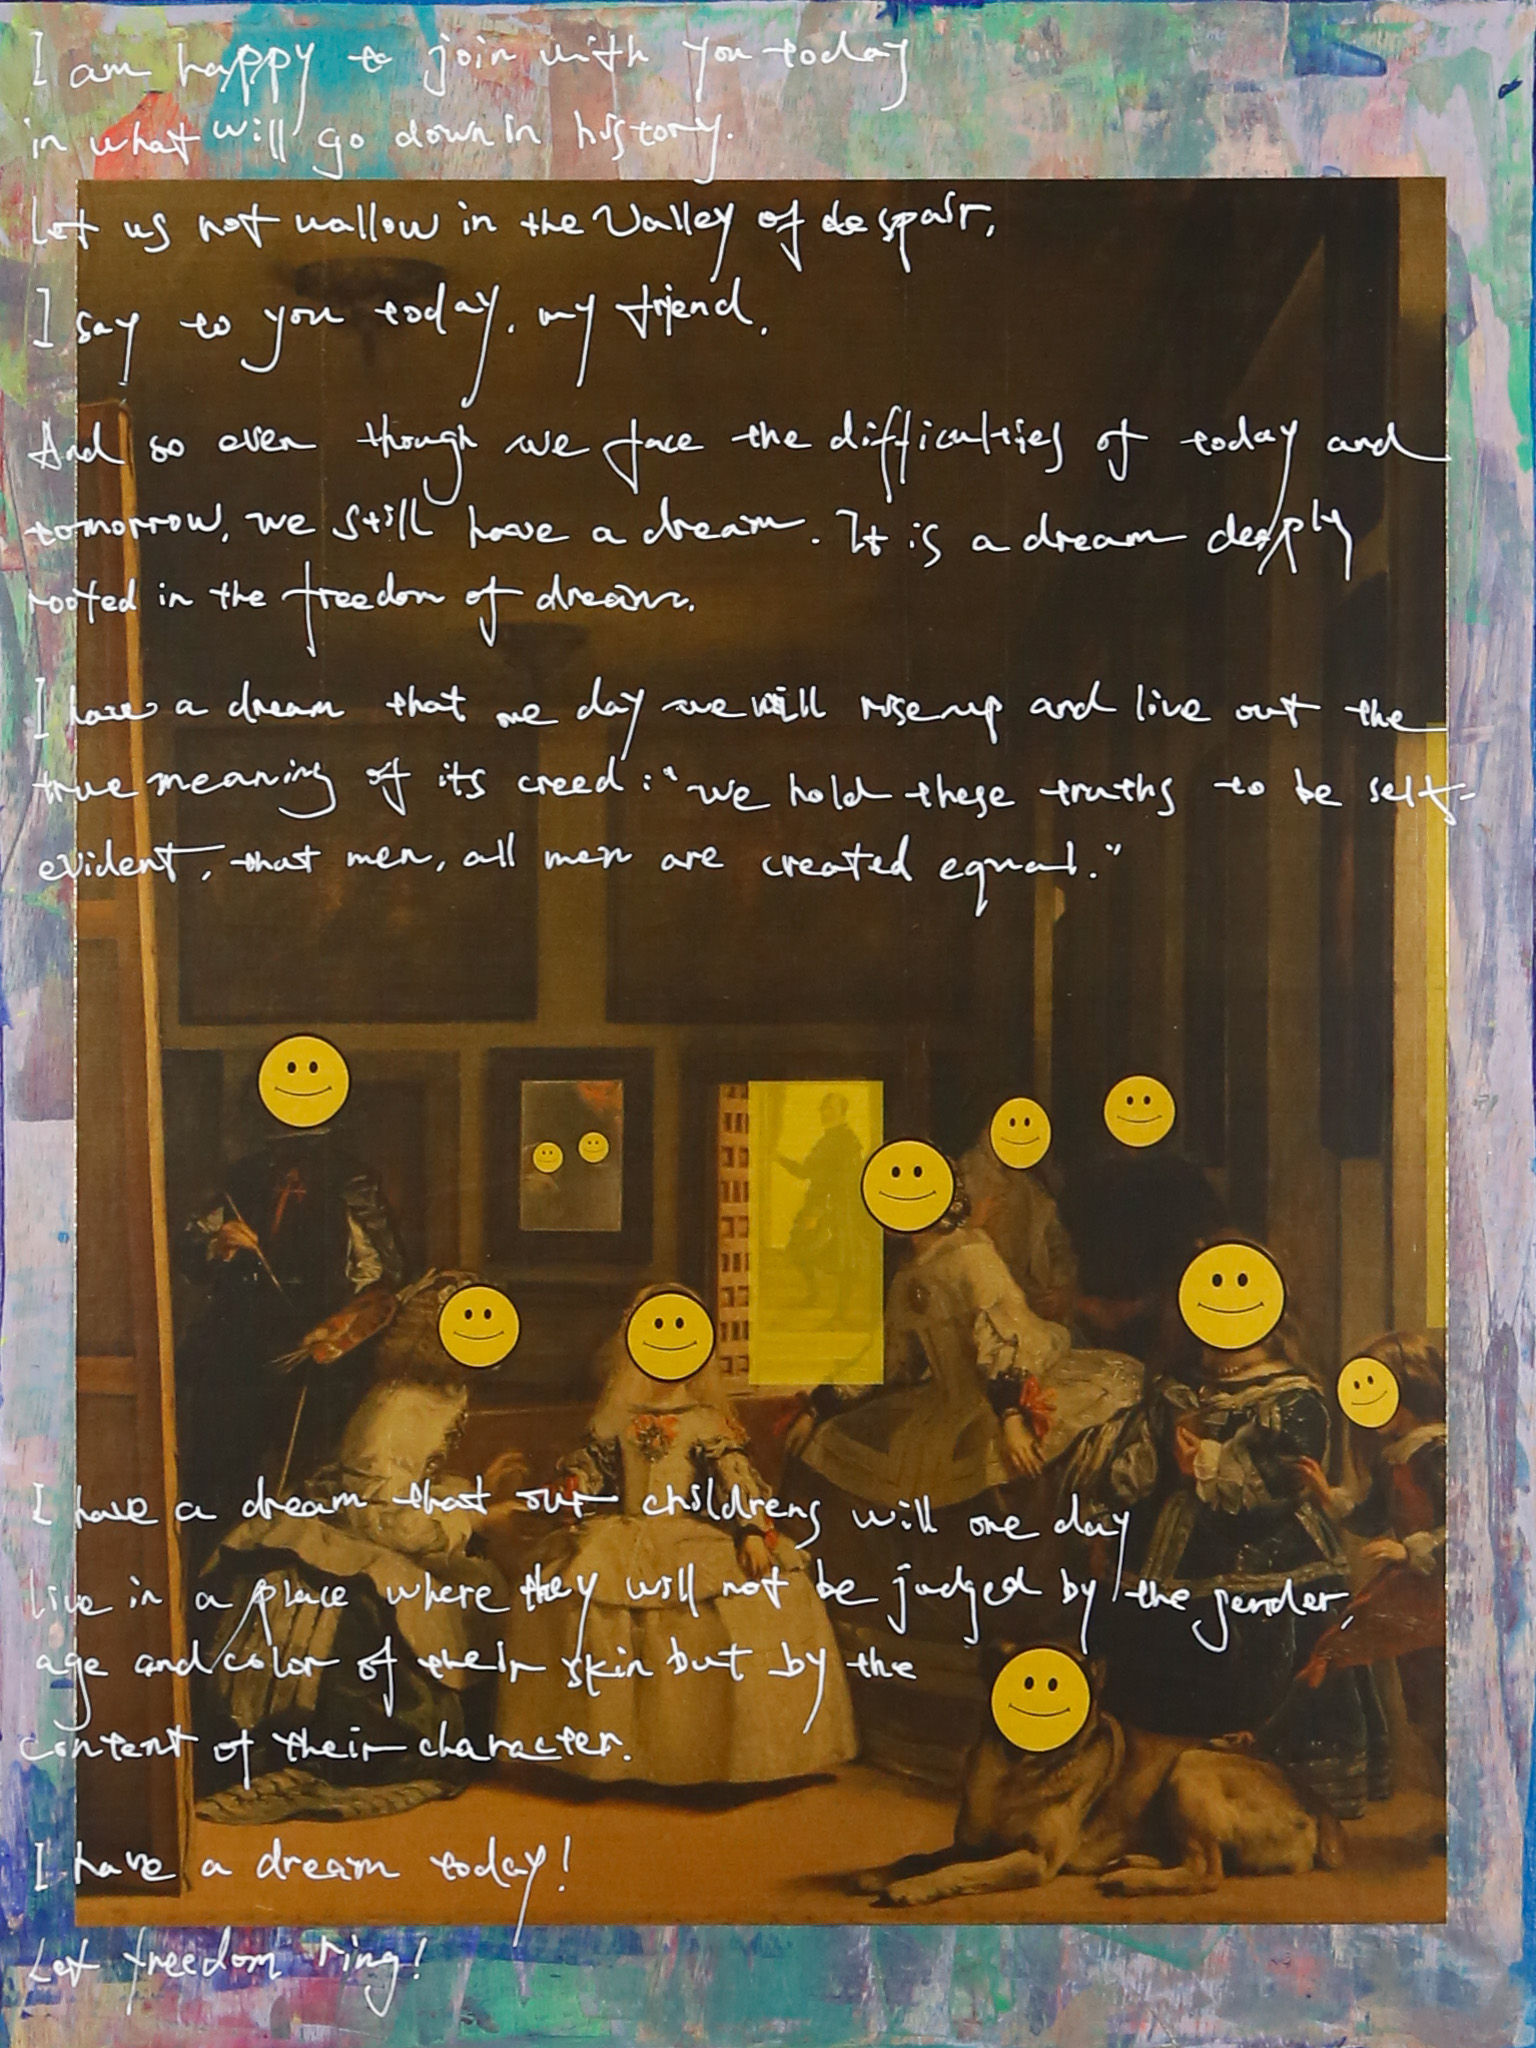 I am happy to join with you today
in what will go down in history.
Let us not wallow in the Valley of despair,
I say to you today, my friend.
And so even though we face the difficulties of today and
tomorrow, we still have a dream. It is a dream deeply
rooted in the freedom of dream.
I have a dream that one day we will rise up and live out the
true meaning of its creed: "we hold these truths to be self-
evident, that men, all men are created equal."
I have a dream that our childrens will one day
live in a place where they will not be judged by the gender,
age and color of their skin but by the
content of their character.
I have a dream today!
Let freedom ring!